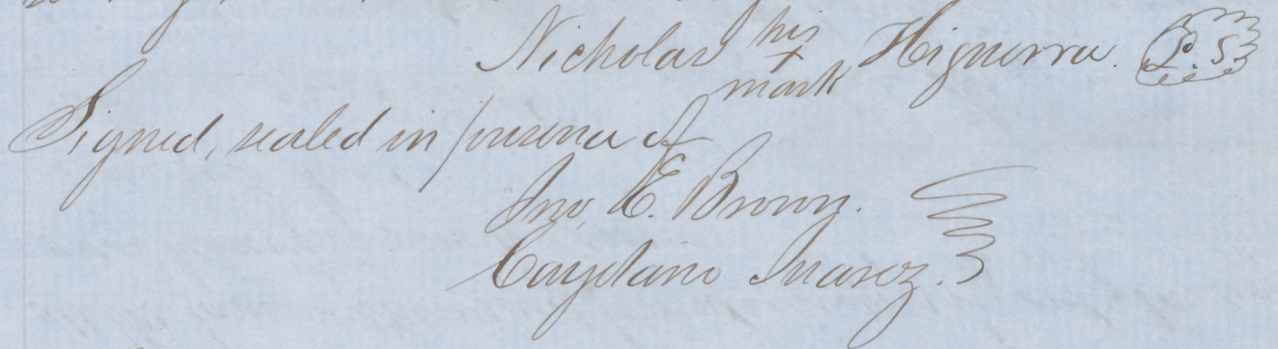 Nicholas his x mark Higuerra. L.S
Signed, sealed in presence of
Jno, E. Brown.
Cayetano Juarez.